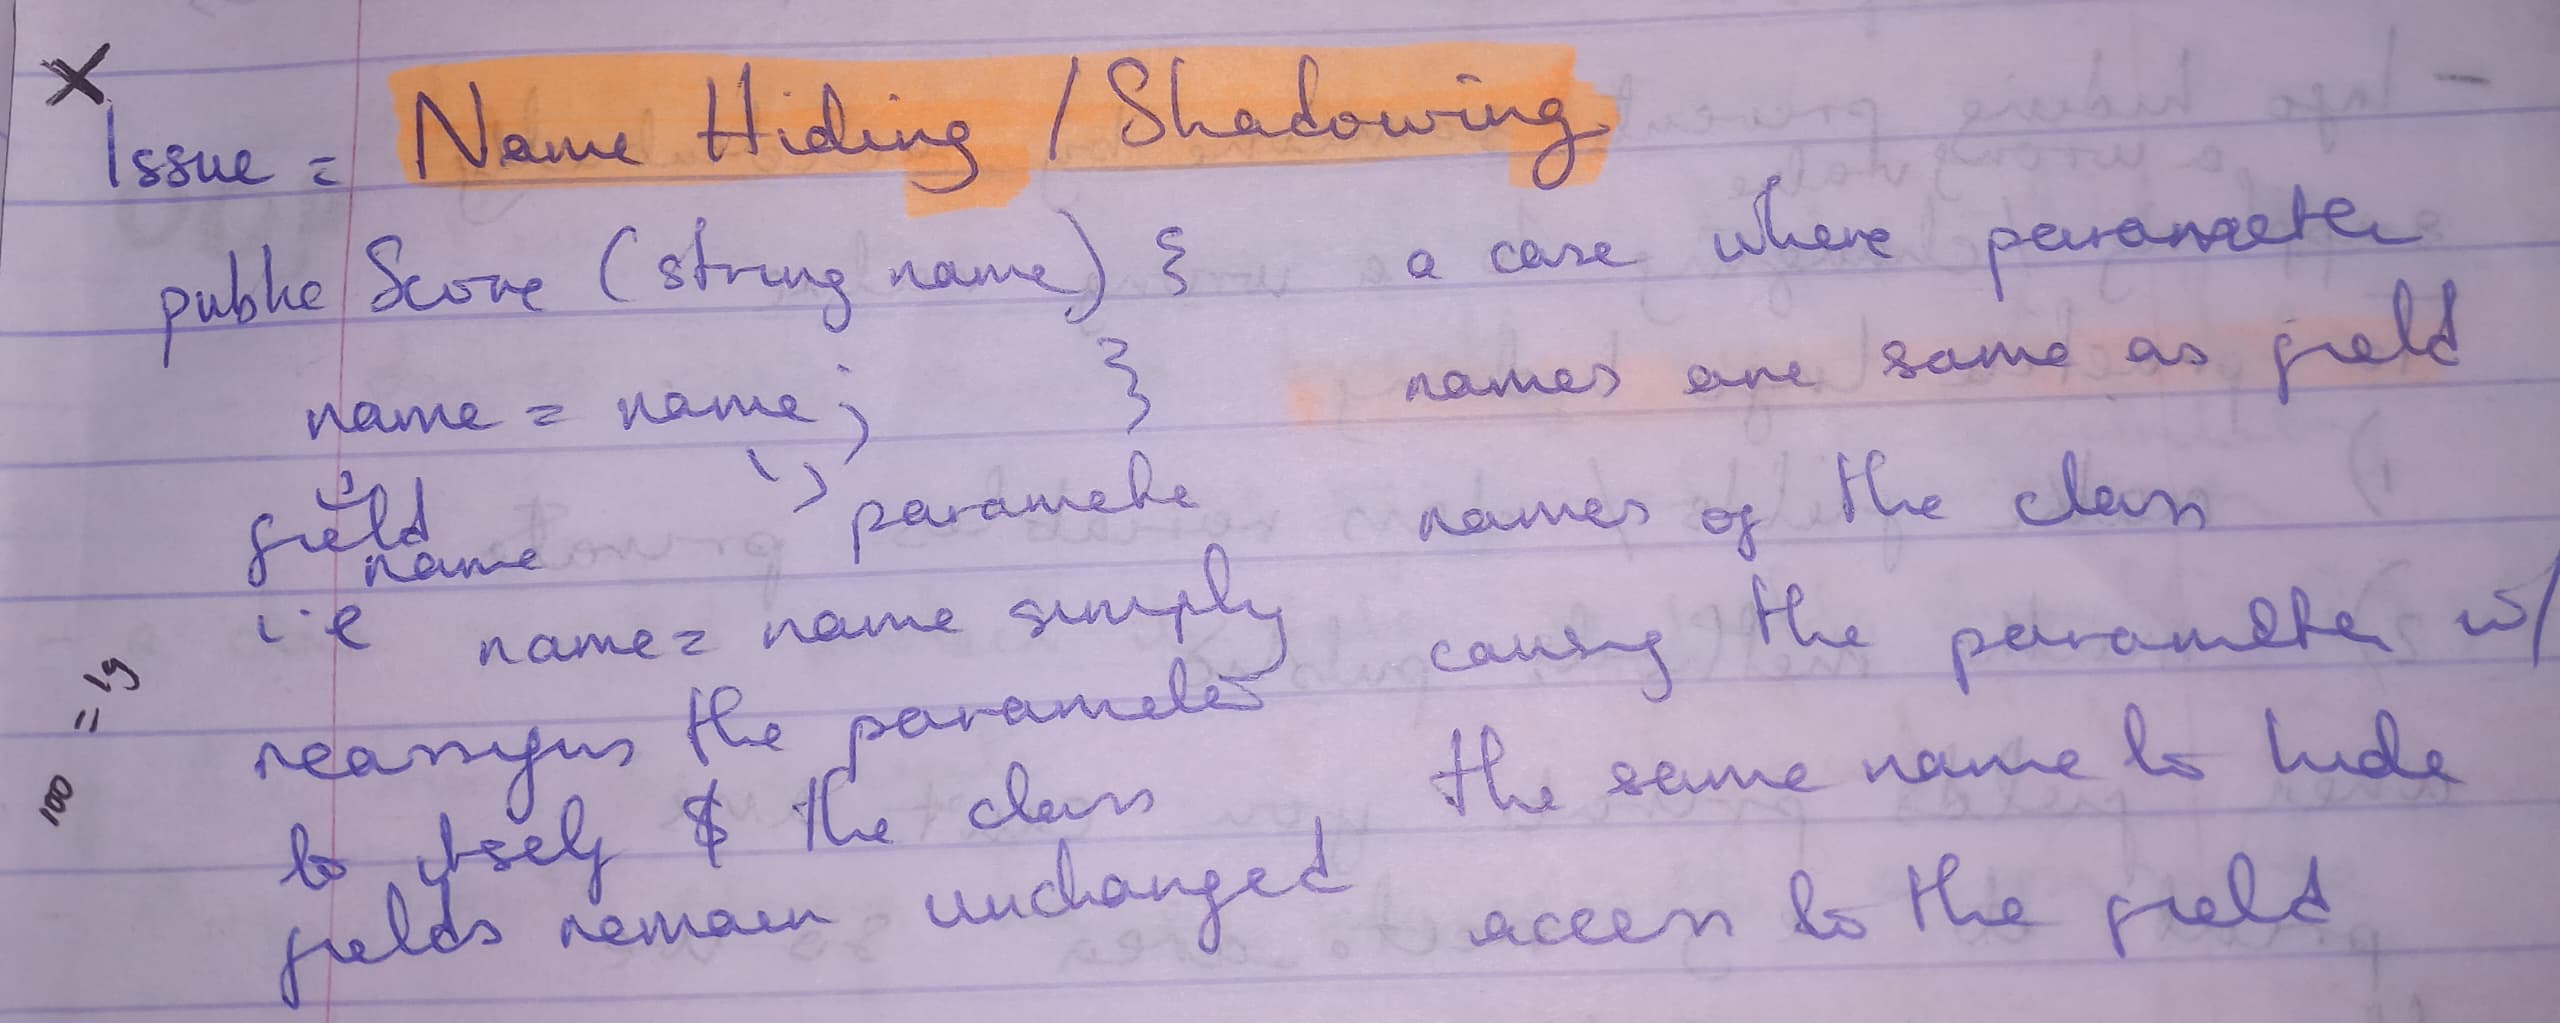 X
Issue = Name Hiding / Shadowing
public Score (string name) {
name = name; }
field name
parameter
i.e name = name simply
reassigns the parameter
to itself & the class
fields remain unchanged
a case where parameter
names are same as field
names of the class
causing the parameter w/
the same name to hide
access to the field
100